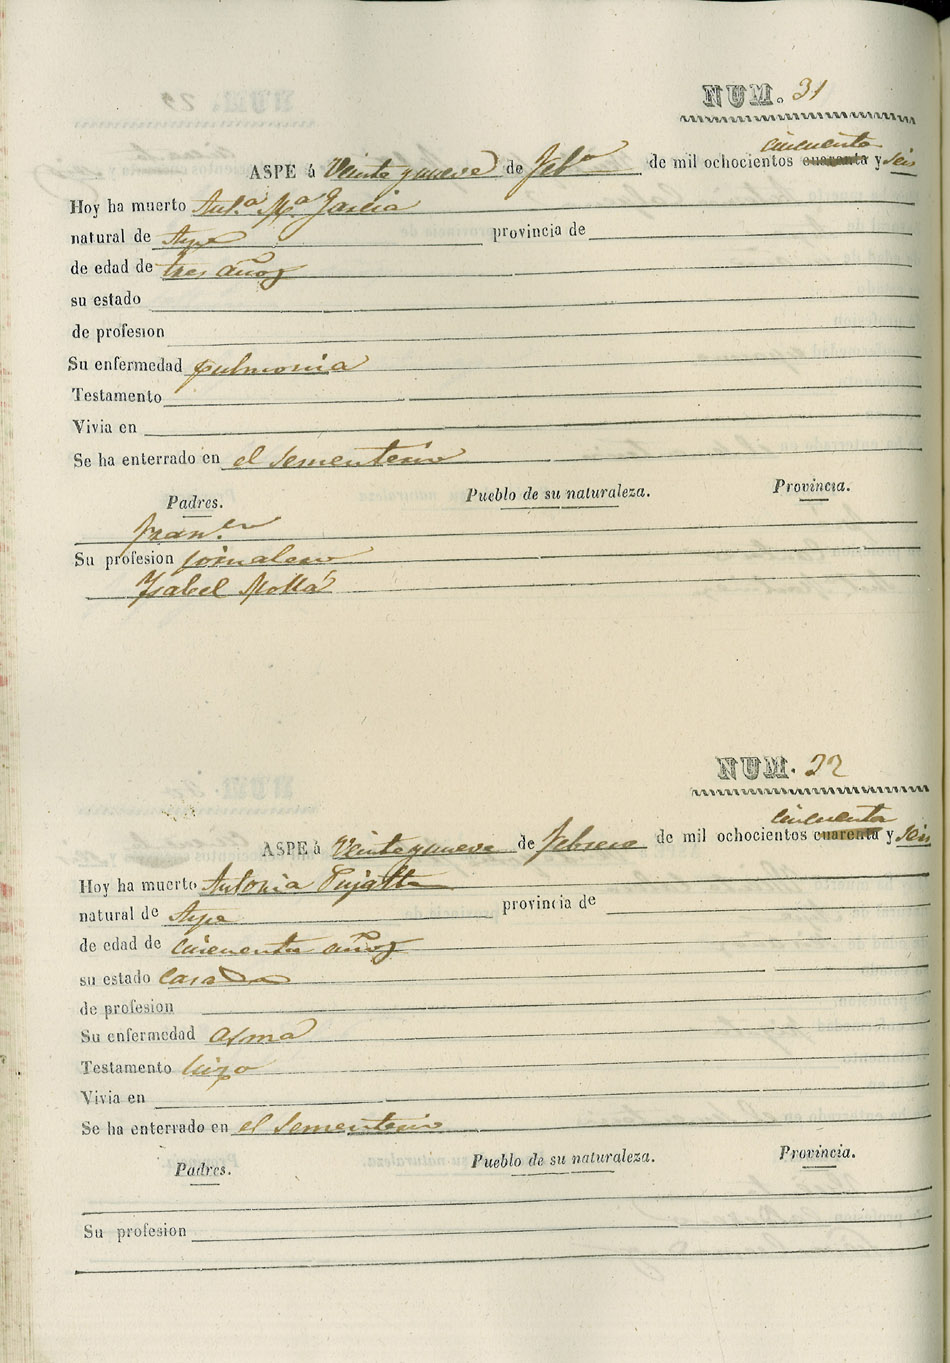 NUM. 31
ASPE á Veinte y nueve de Feb.o de mil ochocientos cincuenta cuarenta y seis
Hoy ha muerto Ant.a M.a Garcia
natural de Aspe provincia de
de edad de tres años
su estado
de profesion
Su enfermedad pulmonia
Testamento
Vivia en
Se ha enterrado en el sementerio
Padres. Pueblo de su naturaleza. Provincia.
Fran.co
Su profesion jornalero
Isabel Mollá
NUM. 32
ASPE á Veinte y nueve de febrero de mil ochocientos cincuenta cuarenta y seis
Hoy ha muerto Antonia Pujalte
natural de Aspe provincia de
de edad de cincuenta años
su estado Casada
de profesion
Su enfermedad asma
Testamento hizo
Vivia en
Se ha enterrado en el sementerio
Padres. Pueblo de su naturaleza. Provincia.
Su profesion